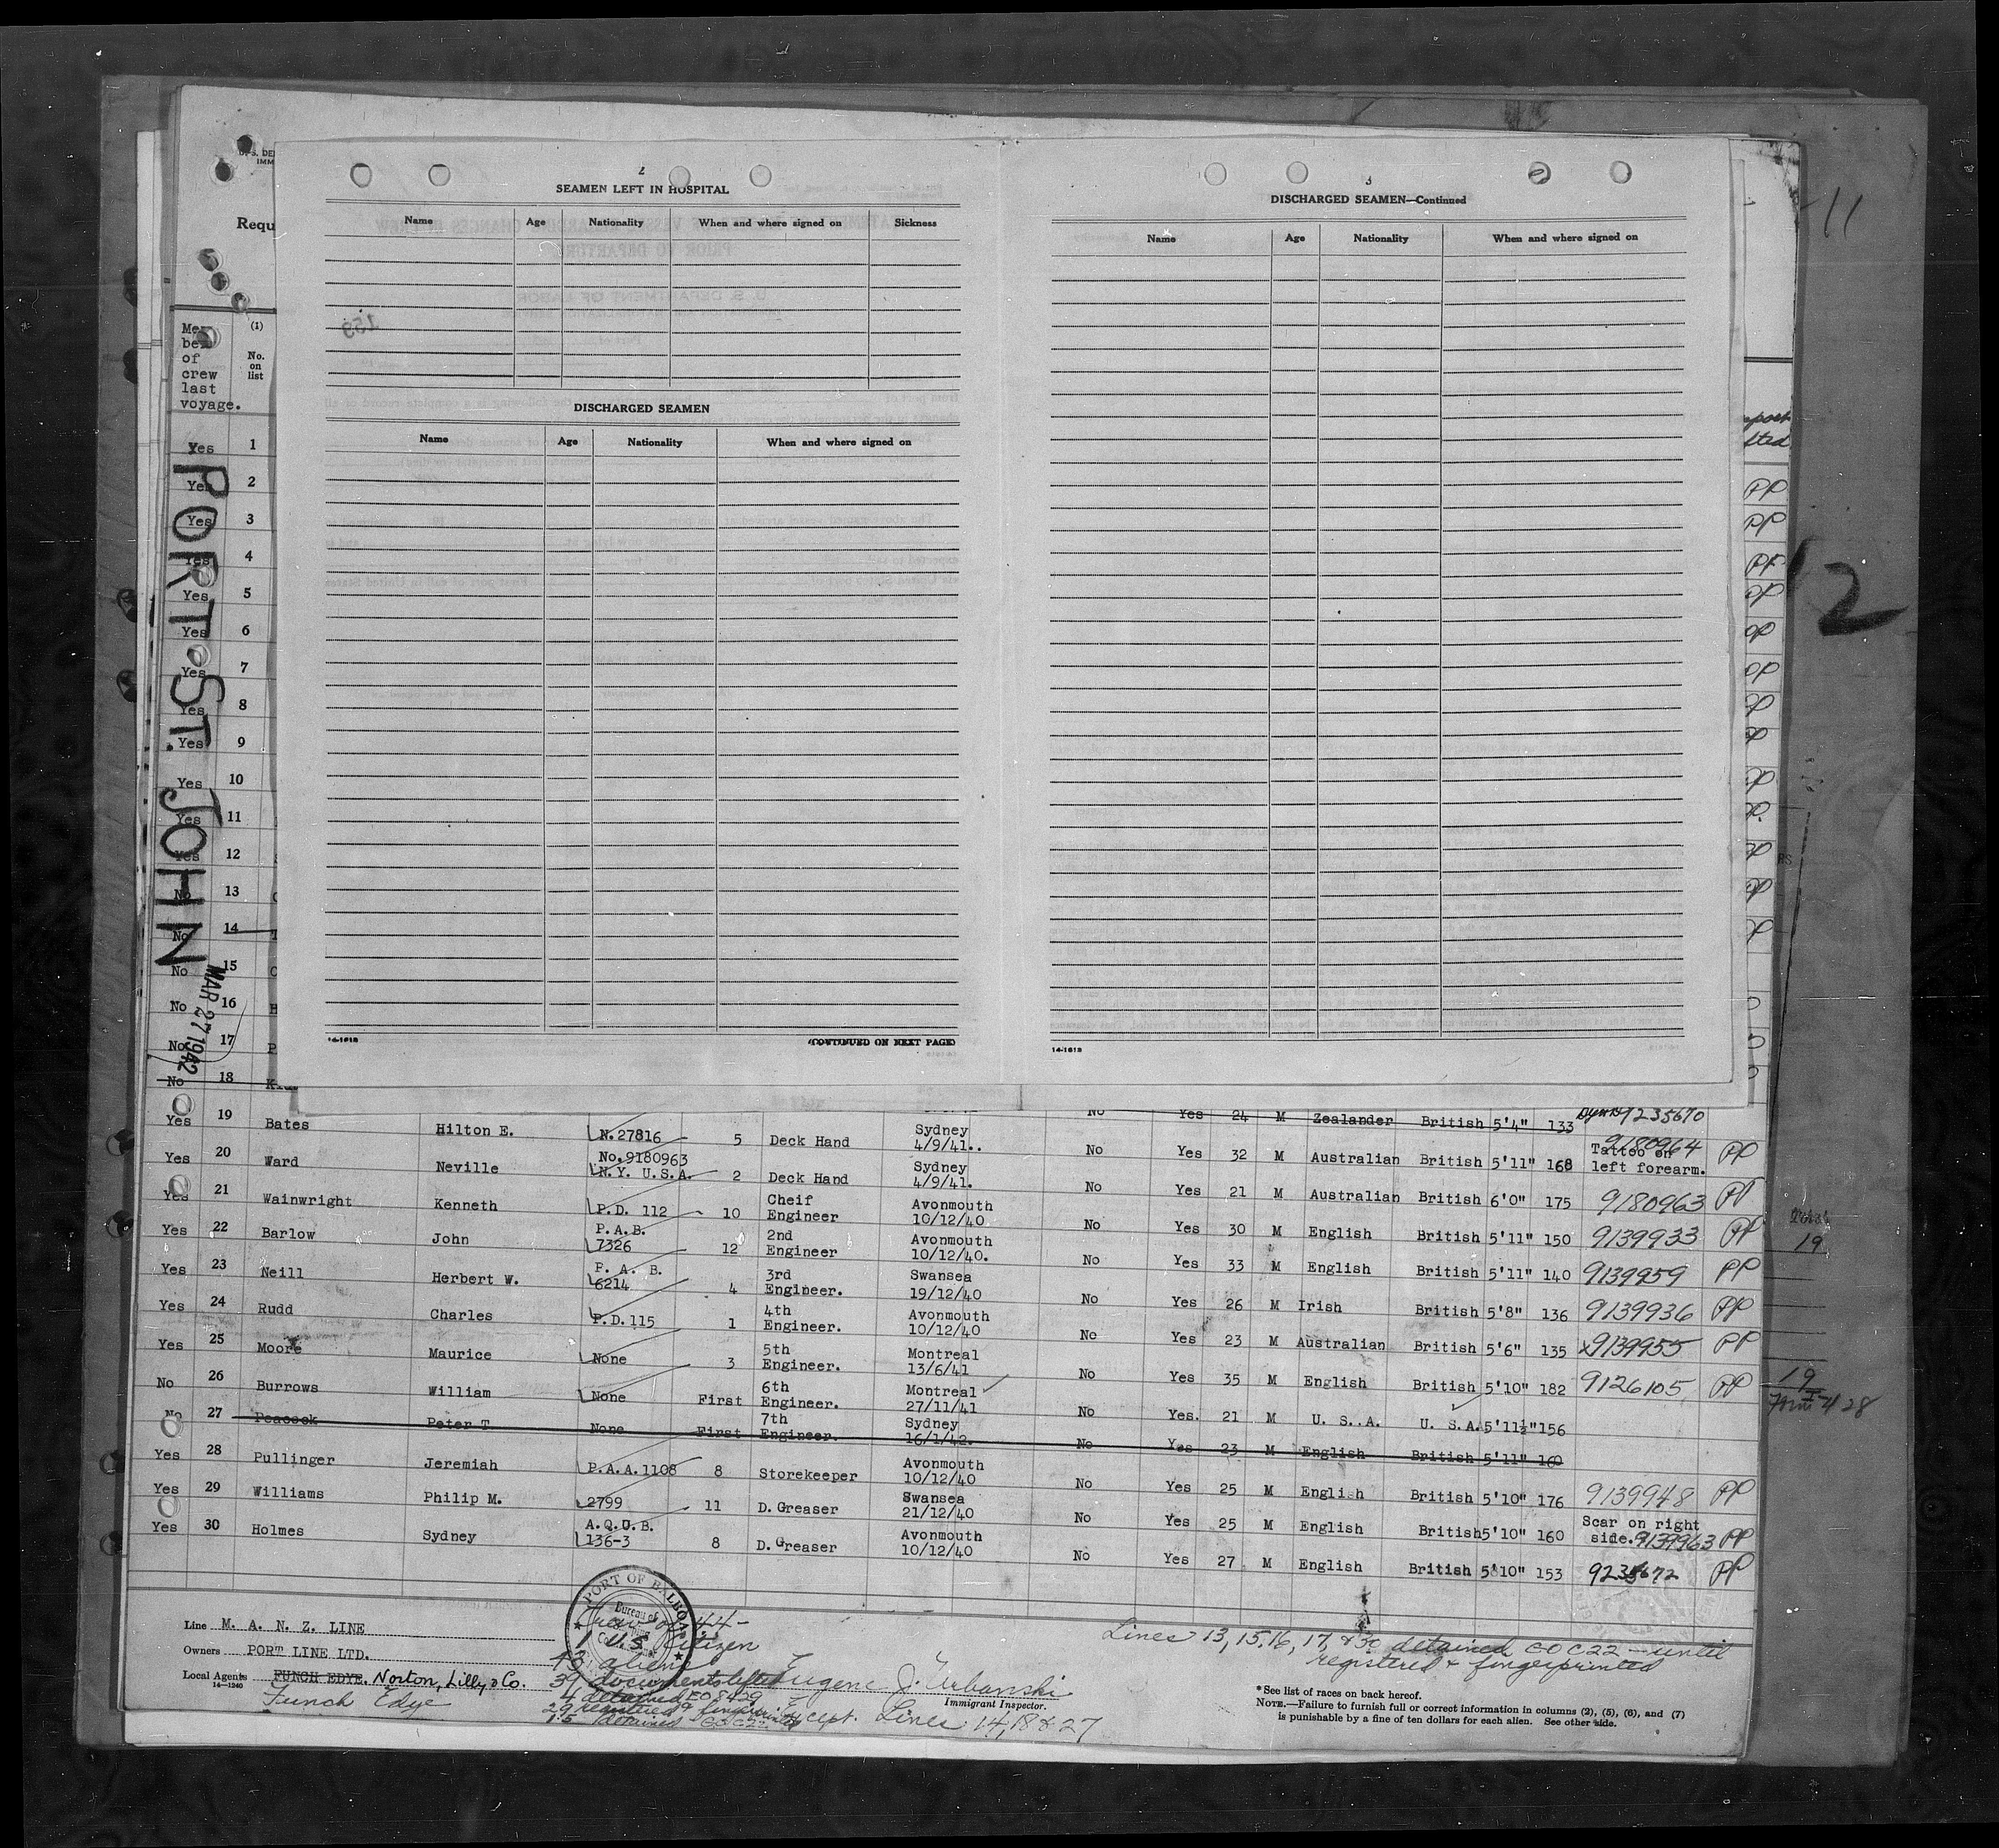 2
SEAMEN LEFT IN HOSPITAL
Name Age Nationality When and where signed on Sickness
DISCHARGED SEAMEN
Name Age Nationality When and where signed on
14-1618 (CONTINUED ON NEXT PAGE)
3
DISCHARGED SEAMEN—Continued
Name Age Nationality When and where signed on
14-1618
11
12
Requ
(1)
No.
on
list
of
crew
last
voyage.
Yes 1
Yes 2
Yes 3
Yes 4
Yes 5
Yes 6
Yes 7
Yes 8
Yes 9
Yes 10
Yes 11
Yes 12
No 13
No 14
No 15
No 16
No 17
No 18
PORT ST. JOHN
MAR 27 1942
No Yes 24 M Zealander British 5'4" 133 9235670
Yes 19 Bates Hilton E. N.27816 5 Deck Hand Sydney 4/9/41.. No Yes 32 M Australian British 5'11" 168 Tattoo on left forearm. 9180964 PP
Yes 20 Ward Neville No.9180963 N.Y. U.S.A. 2 Deck Hand Sydney 4/9/41. No Yes 21 M Australian British 6'0" 175 9180963 PP
Yes 21 Wainwright Kenneth P.D. 112 10 Cheif Engineer Avonmouth 10/12/40 No Yes 30 M English British 5'11" 150 9139933 PP
Yes 22 Barlow John P.A.B. 7326 12 2nd Engineer Avonmouth 10/12/40. No Yes 33 M English British 5'11" 140 9139959 PP
Yes 23 Neill Herbert W. P. A. B. 6214 4 3rd Engineer. Swansea 19/12/40 No Yes 26 M Irish British 5'8" 136 9139936 PP
Yes 24 Rudd Charles P.D.115 1 4th Engineer. Avonmouth 10/12/40 No Yes 23 M Australian British 5'6" 135 x9139955 PP
Yes 25 Moore Maurice None 3 5th Engineer. Montreal 13/6/41 No Yes 35 M English British 5'10" 182 9126105 PP
No 26 Burrows William None First 6th Engineer. Montreal 27/11/41 No Yes. 21 M U. S. A. U. S.A. 5'11½" 156
No 27 Peacock Peter T None First 7th Engineer. Sydney 16/1/42. No Yes 23 M English British 5'11" 160
Yes 28 Pullinger Jeremiah P.A.A.1108 8 Storekeeper Avonmouth 10/12/40 No Yes 25 M English British 5'10" 176 9139948 PP
Yes 29 Williams Philip M. 2799 11 D. Greaser Swansea 21/12/40 No Yes 25 M English British 5'10" 160 Scar on right side. 9139963 PP
Yes 30 Holmes Sydney A.Q.U.B. 136-3 8 D. Greaser Avonmouth 10/12/40 No Yes 27 M English British 5'10" 153 9235672 PP
19
19
Line M. A. N. Z. LINE
Owners PORT LINE LTD.
Local Agents FUNCH EDYE. Norton, Lilly, & Co.
14-1240
Funch Edye
PORT OF BALBOA
Bureau of
44
1 U.S. Citizen
43 aliens
39 documents lifted
4 detained EO 8429
29 registered & fingerprinted
15 detained
Eugene J. Urbanski
Immigrant Inspector.
Except. Lines 14, 18 & 27
Lines 13, 15, 16, 17, & 30 detained GO C22 — until
registered & fingerprinted
*See list of races on back hereof.
NOTE.—Failure to furnish full or correct information in columns (2), (5), (6), and (7)
is punishable by a fine of ten dollars for each alien. See other side.